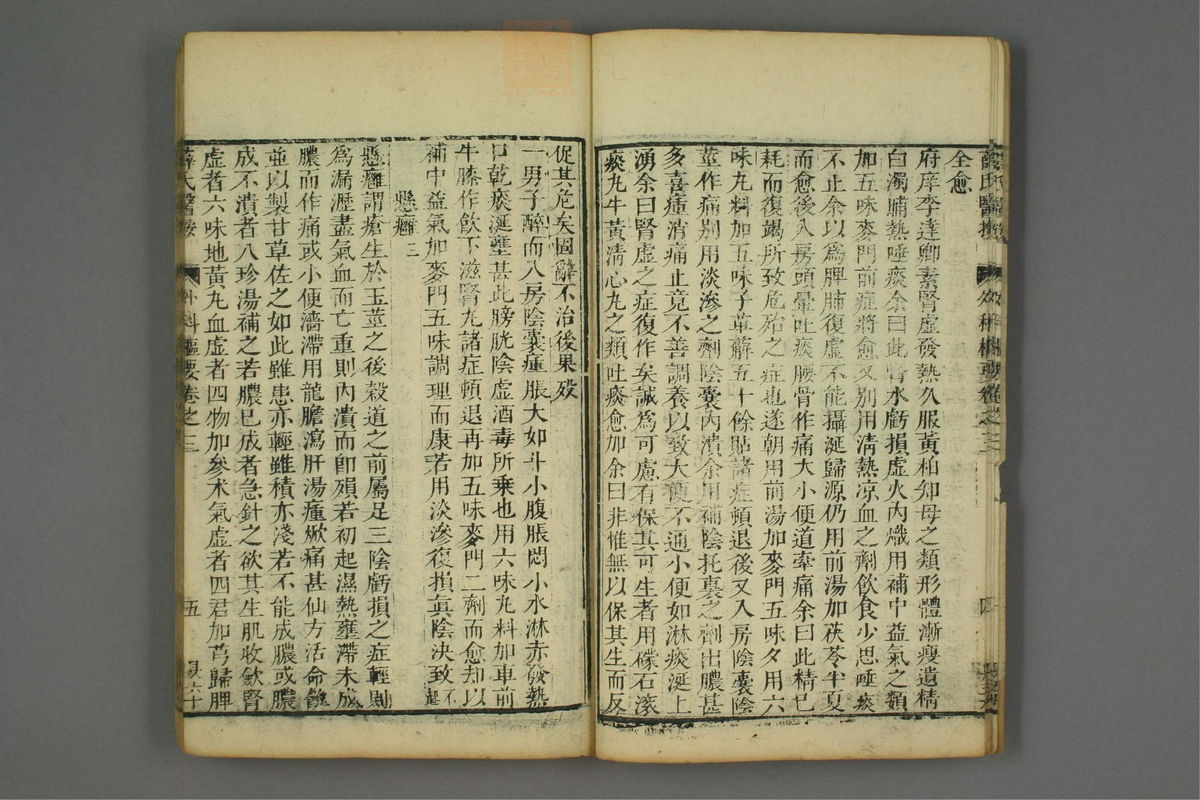 全愈
府庠李達卿素腎虛發熱久服黃柏知母之類形體漸瘦遺精
白濁晡熱唾痰余曰此腎水虧損虛火內熾用補中益氣之類
加五味麥門前症將愈又別用淸熱凉血之劑飲食少思唾痰
不止余以爲脾肺復虛不能攝涎歸源仍用前湯加茯苓半夏
而愈後入房頭暈吐痰腰骨作痛大小便道牽痛余曰此精已
耗而復竭所致危殆之症也遂朝用前湯加麥門五味夕用六
味丸料加五味子萆薢五十餘貼諸症頓退後又入房陰囊陰
莖作痛別用淡滲之劑陰囊內潰余用補陰托裏之劑出膿甚
多喜瘇消痛止竟不善調養以致大便不通小便如淋痰涎上
湧余曰腎虛之症復作矣誠爲可慮有保其可生者用礞石滾
痰丸牛黃淸心丸之類吐痰愈加余曰非惟無以保其生而反
促其危矣固辭不治後果歿
一男子醉而入房陰囊瘇脹大如斗小腹脹悶小水淋赤發熱
口乾痰涎壅甚此膀胱陰虛酒毒所乗也用六味丸料加車前
牛膝作飲下滋腎丸諸症頓退再加五味麥門二劑而愈却以
補中益氣加麥門五味調理而康若用淡滲復損眞陰決致不起
懸癰三
懸癰謂瘡生於玉莖之後穀道之前屬足三陰虧損之症輕則
爲漏瀝盡氣血而亡重則內潰而卽殞若初起濕熱壅滯未成
膿而作痛或小便濇滯用龍膽瀉肝湯瘇焮痛甚仙方活命飮
並以製甘草佐之如此雖患亦輕雖積亦淺若不能成膿或膿
成不潰者八珍湯補之若膿已成者急針之欲其生肌收斂腎
虛者六味地黃丸血虛者四物加參朮氣虛者四君加芎歸脾
薛氏醫按
外科樞要卷之三
五